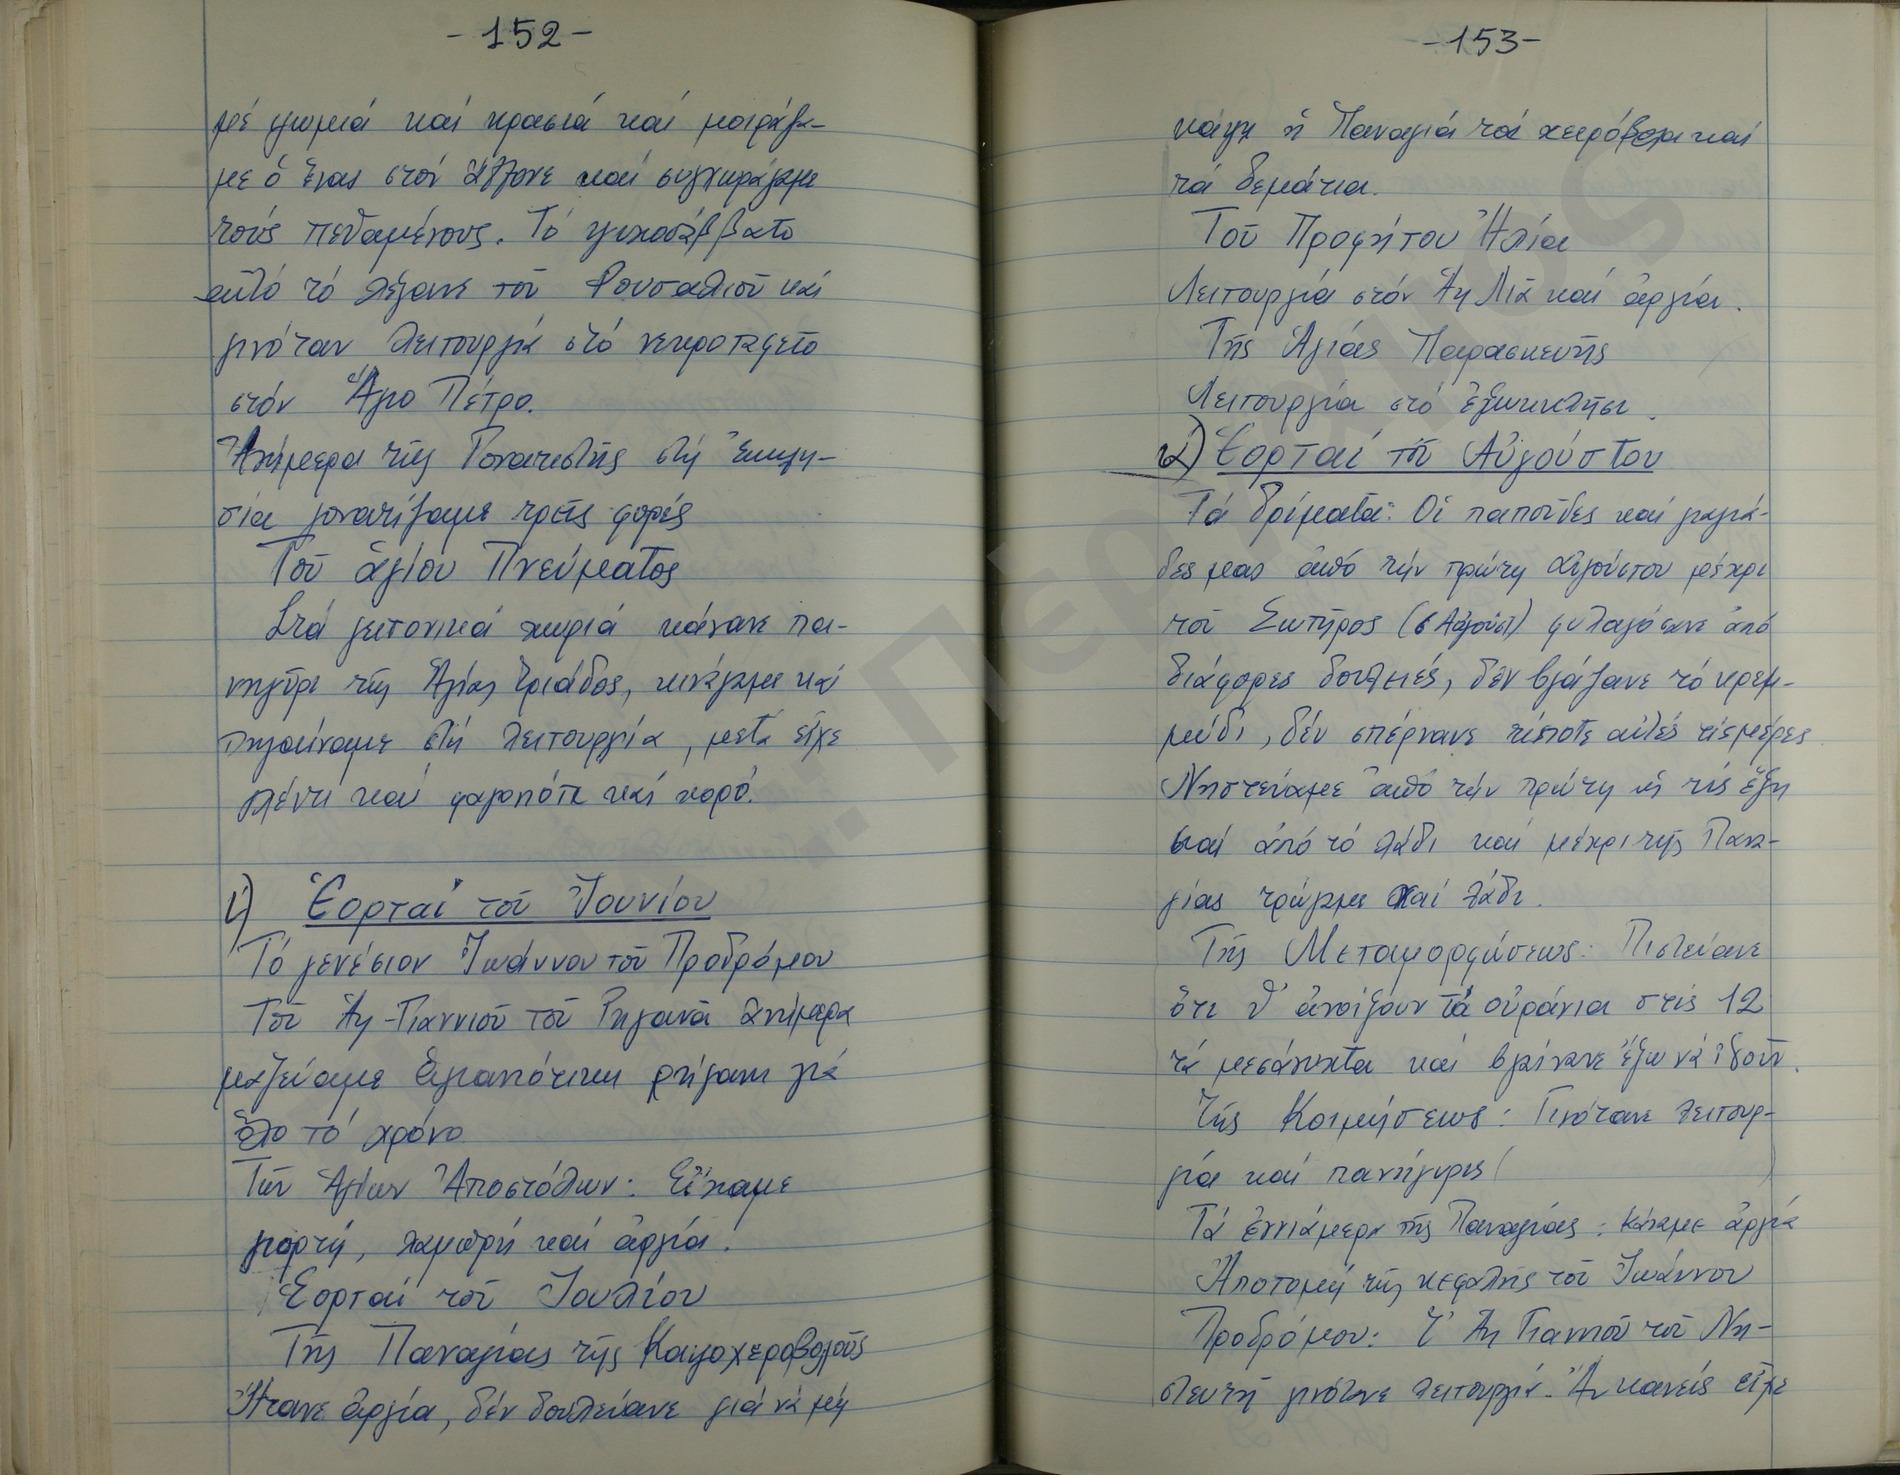 -152-
μέ ψωμιά καί κρασιά καί μοιράζα-
με ὁ ἕνας στόν ἄλλονε καί συγχωράγαμε
τούς πεθαμένους. Τό ψυχοσάββατο
αὐτό τό λέγανε τοῦ Ρουσαλιοῦ καί
γινόταν λειτουργία στό νεκροταφεῖο
στόν Ἅγιο Πέτρο.
Ἀνήμερα τῆς Γονατιστῆς στή Ἐκκλη-
σία γονατίζαμε τρεῖς φορές
Τοῦ ἁγίου Πνεύματος
Στά γειτονικά χωριά κάνανε πα-
νηγύρι τῆς Ἁγίας Τριάδος, κινάγαμε καί
πηγαίναμε στή λειτουργία, μετά εἶχε
γλέντι καί φαγοπότι καί χορό.
ι) Ἑορταί τοῦ Ἰουνίου
Τό γενέσιον Ἰωάννου τοῦ Προδρόμου
Τοῦ Ἁη-Γιαννιοῦ τοῦ Ριγανᾶ ἀνήμερα
μαζεύαμε ἁγιαννιώτικη ρήγανη γιά
ὅλο τό χρόνο
Τῶν Ἁγίων Ἀποστόλων: Εἴχαμε
γιορτή, λαμπρή καί ἀργία.
Ἑορταί τοῦ Ἰουλίου
Τῆς Παναγίας τῆς Καψοχεροβολοῦς
Ἤτανε ἀργία, δέν δουλεύανε γιά νά μή
-153-
κάψη ἡ Παναγιά τά χειρόβολα καί
τά δεμάτια.
Τοῦ Προφήτου Ἠλία
Λειτουργιά στόν Ἁη Λιᾶ καί ἀργία.
Τῆς Ἁγίας Παρασκευῆς
Λειτουργία στό ἐξωκκλῆσι.
Ἑορταί τοῦ Αὐγούστου
Τά δρίματα: Οἱ παποῦδες καί γιαγιά-
δες μας ἀπό τήν πρώτη Αὐγούστου μέχρι
τοῦ Σωτῆρος (6 Αὐγούστ) φυλαγόσανε ἀπό
διάφορες δουλειές, δέν βγάζανε τό κρεμ-
μύδι, δέν σπέρνανε τίποτε αὐτές τίς μέρες
Νηστεύαμε ἀπό τήν πρώτη ὥς τίς ἕξη
καί ἀπό τό λάδι καί μέχρι τῆς Πανα-
γίας τρώγαμε καί λάδι.
Τῆς Μεταμορφώσεως: Πιστεύανε
ὅτι θ' ἀνοίξουν τά οὐράνια στίς 12
τά μεσάνυχτα καί βγαίνανε ἔξω νά ἰδοῦν.
Τῆς Κοιμήσεως: Γινότανε λειτουρ-
γία καί πανήγυρις ( )
Τά ἐννιάμερα τῆς Παναγίας: Κάναμε ἀργία
Ἀποτομή τῆς κεφαλῆς τοῦ Ἰωάννου
Προδρόμου: Τ' Ἁη Γιαννιοῦ τοῦ Νη-
στευτῆ γινότανε λειτουργία. Ἄν κανείς εἶχε